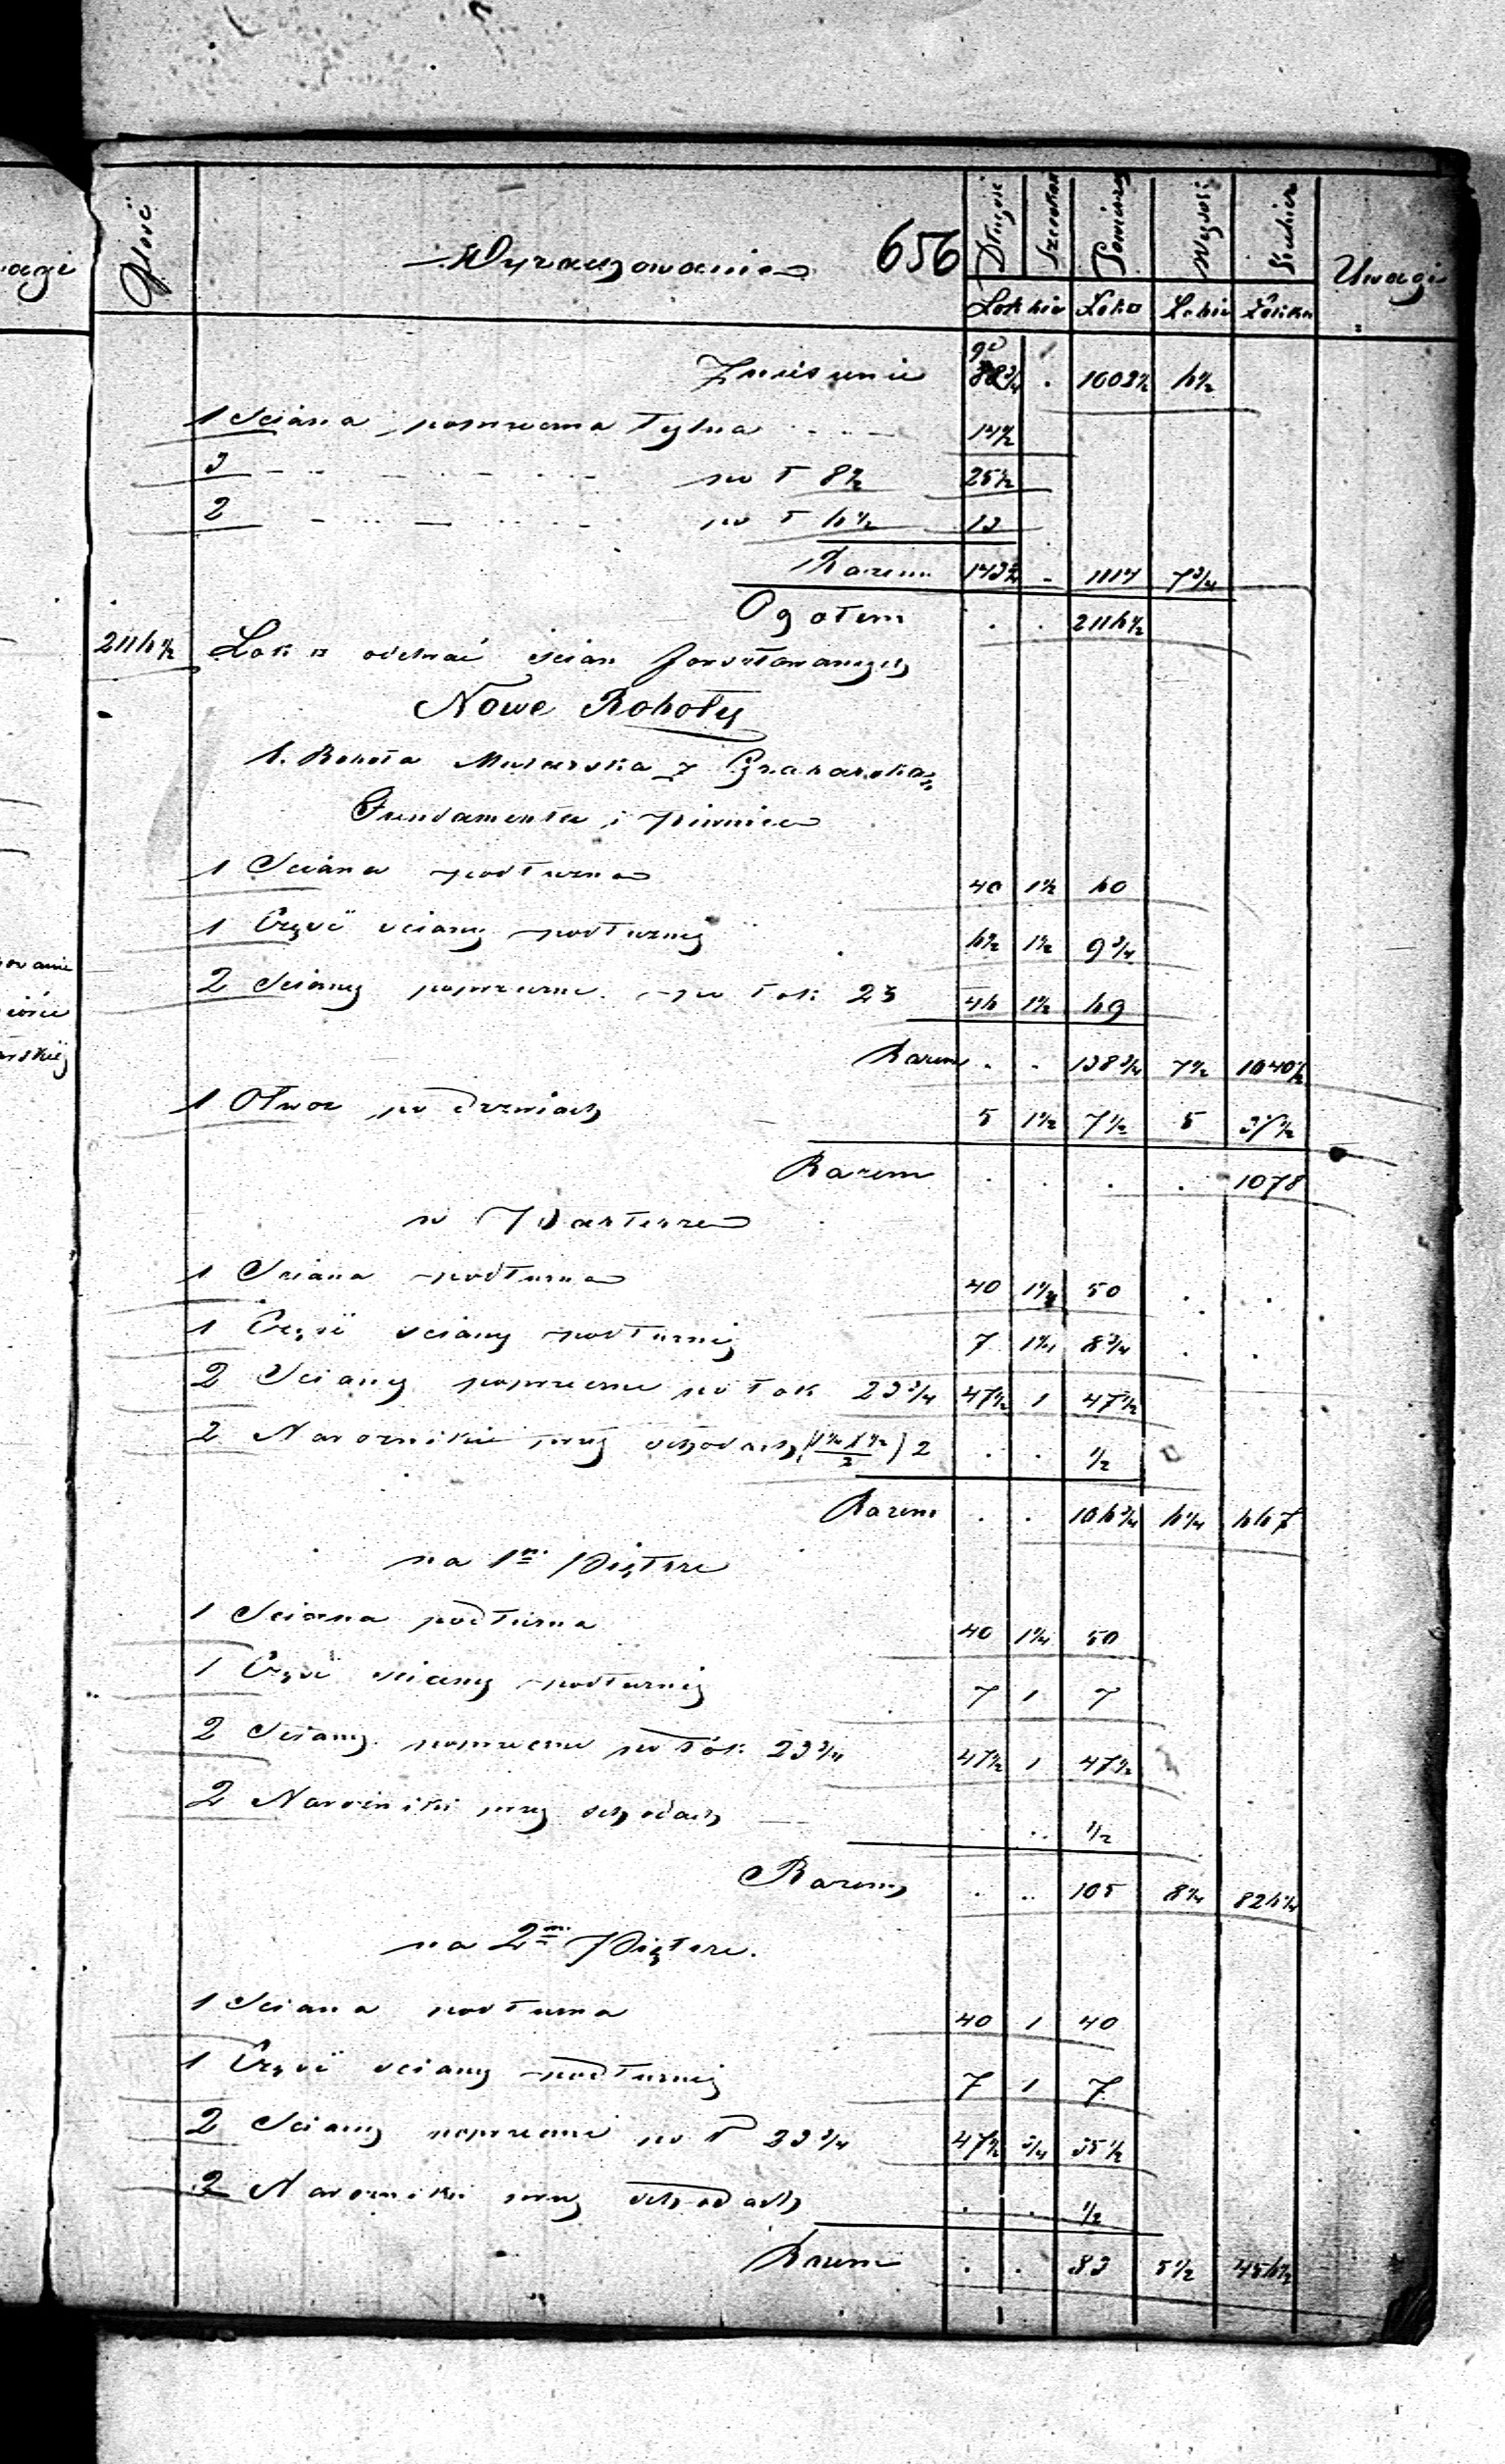 agi
Ilość Wyrachowanie 656 Długość Szerokość Powierz Wysokość Uwagi
Łokcie Łokci Łokcie
Zniesienie 90 88 3/4 . 1002 1/2 6 1/2
1 Sciana poprzeczna tylna 14 1/2
3 - - - po ł 8 1/2 25 1/2
2 - - - po ł 6 1/2 13
Razem 143 3/4 . 1114 7 3/4
Ogołem . . 2116 1/2
2116 1/2 Łok □ odebrać ścian
Nowe Roboty
1. Robota Mularska z Grabarską
Fundamenta i piwnice
1 Sciana podłużna 40 1 1/2 60
1 Część sciany podłużnej 6 1/2 1 1/2 9 3/4
2 Sciany poprzeczne po łok 23 46 1 1/2 69
Razem . . 138 3/4 7 1/2 1040 1/2
1 Otwor po drzwiach 5 1 1/2 7 1/2 5 37 1/2
Razem . . . . 1078
w Parterze
1 Sciana podłużna 40 1 1/4 50 . .
1 Część sciany podłużnej 7 1 1/4 8 3/4 . .
2 Sciany poprzeczne po łok 23 3/4 47 1/2 1 47 1/2
2 Narożniki przy schodach 2 . . 1/2
Razem . . 106 3/4 6 1/4 667
na 1m Piętrze
1 Sciana podłużna 40 1 1/4 50
1 Część sciany podłużnej 7 1 7
2 Sciany poprzeczne po łok 23 3/4 47 1/2 1 47 1/2
2 Narożniki przy schodach . .. 1/2
Razem . .. 105 8 1/4 826 1/4
na 2m Piętrze.
1 Sciana podłużna 40 1 40
1 Część sciany podłużnej 7 1 7
2 Sciany poprzeczne po ł 23 3/4 47 1/2 3/4 35 1/2
2 Narożniki przy schodach . . 1/2
Razem . . 83 5 1/2 456 1/2